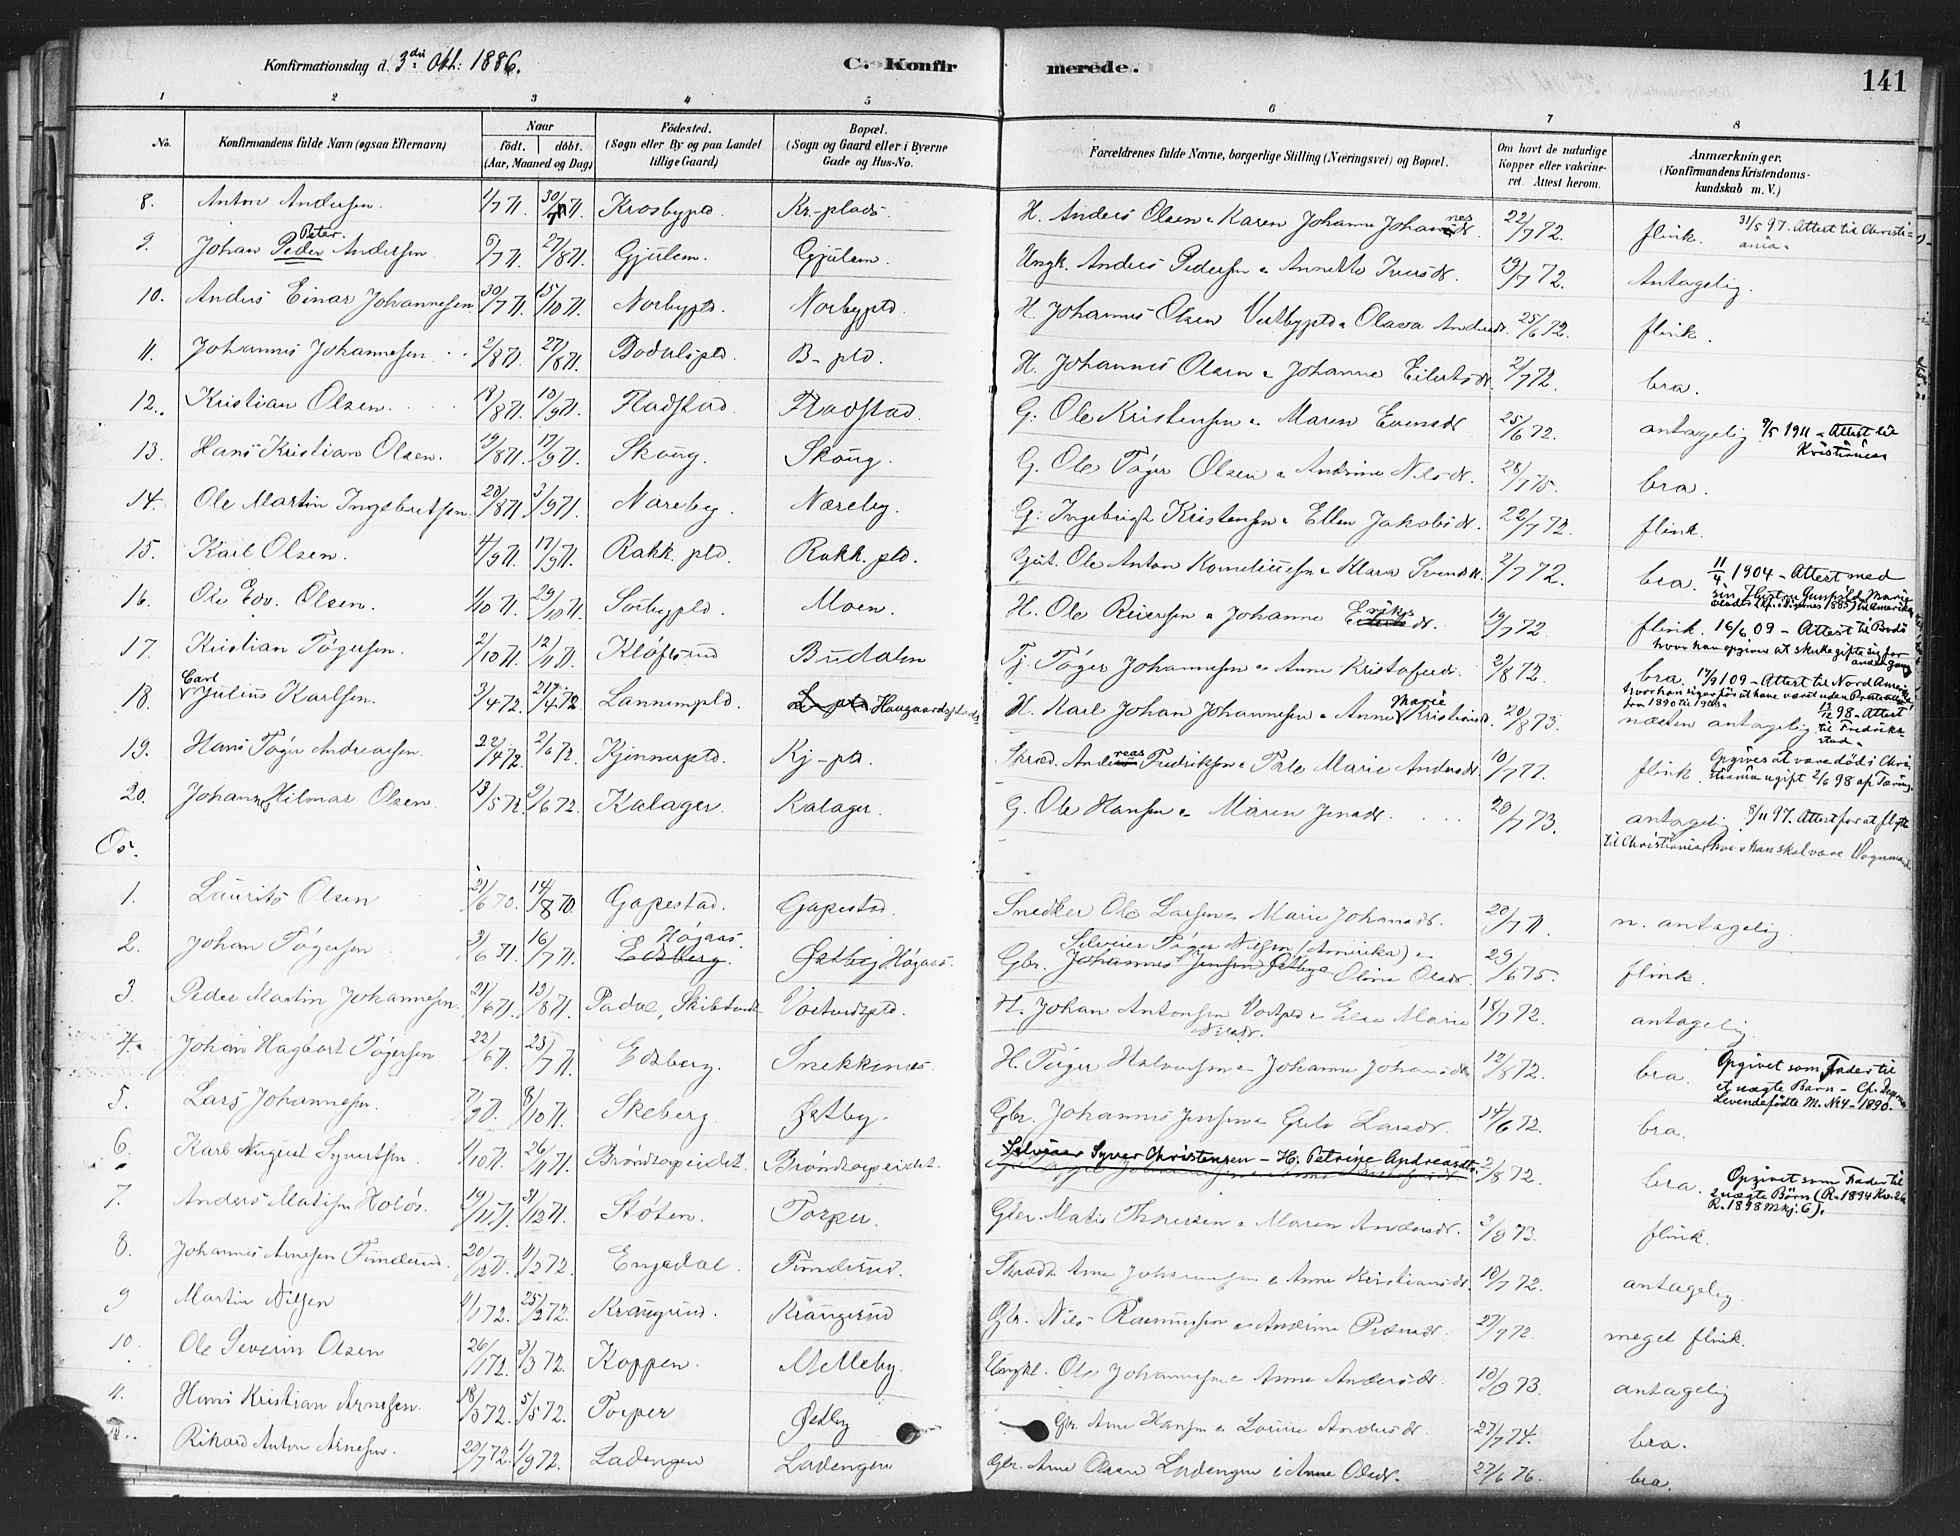 Konfirmationsdag d. 3die Okt. 1886.
C. Konfirmerede.
141
1 2 3 4 5 6 7 8
No. Konfirmandens fulde Navn (ogsaa Efternavn) Naar født. døbt. (Aar, Maaned og Dag) Fødested. (Sogn eller By og paa Landet tillige Gaard) Bopæl. (Sogn og Gaard eller i Byerne Gade og Hus-No. Forældrenes fulde Navne, borgerlige Stilling (Næringsvei) og Bopæl. Om havt de naturlige Kopper eller vakcineret. Attest herom. Anmærkninger. (Konfirmandens Kristendomskundskab m. V.)
8. Anton Andersen. 1/7 71. Krosbypld. Kr-plads. H. Anders Olsen & Karen Johanne Johannesdr. 22/7 72. flink. 31/5 97. Attert til Christiania.
9. Johan Peder Peter Andersen 6/7 71. 27/8 71. Gjulem. Gjulem. Ungk. Anders Pedersen & Annette Iversdr. 19/7 72. Antagelig.
10. Anders Einar Johannesen 30/7 71. 15/10 71. Norbypld. Norbypld. H. Johannes Olsen Vestbypld & Olava Andersdr. 25/6 72. flink.
11. Johannes Johannesen 2/8 71. 27/8 71. B-pld. H. Johannes Olsen & Johanne Eilertsdr. 2/7 72. bra.
12. Kristian Olsen. 18/8 71. 10/9 71. Fladstad. Fladstad. G. Ole Kristensen & Maren Evensdr 25/6 72. antagelig 9/5 1911 - Attest til Kristiania
13. Hans Kristian Olsen. 19/8 71. 17/9 71. Skoug. Skoug. G. Ole Tøger Olsen & Andrine Nilsdr. 28/7 75. bra.
14. Ole Martin Ingebretsen 20/8 71. 3/9 71. Næreby. Næreby. G. Ingebrigt Kristensen & Ellen Jakobsdr. 22/7 72. flink.
15. Karl Olsen. 4/9 71. 17/9 71. Rakk. pld. Rakk. pld. Ole Anton Korneliussen & Klara Svendsdr. 2/7 72. bra. 11/4 1904 - Attert med
16. Ole Edv. Olsen. 1/10 71. 29/10 71. Sørbypld. Moen. H. Ole Reiersen & Johanne Eriksdr. 19/7 72. flink. 16/6 09 - Attert til Bodø hvor han opgiver at skulle gifte sig for anden gang
17. Kristian Tøgersen. 2/10 71. 12/11 71. Kløfsrud Budalen Tj. Tøger Johannesen & Anne Kristofersdr. 2/8 72. bra. 17/9 09 - Attert til Nord Amerika
18. Carl Julius Karlsen. 3/4 72. 21/4 72 Lannempld. Haugaardsplads H. Karl Johan Johannesen & Anne Marie Kristiansdr. 20/8 73. næsten antagelig 98 - Attest til Fredrikstad.
19. Hans Tøger Andreasen. 22/4 72. 2/6 72. Kjennerpld. Kj-pld. Skræd. Andreas Fredriksen & Pale Marie Andersdr. 10/7 77. flink. Opgives at være død i Christiania ugift 2/6 98 af Tæring.
20. Johan Hilmar Olsen. 13/5 72. 9/6 72. Kalager. Kalager. G. Ole Hansen & Maren Jensdr. 20/7 73. antagelig. 8/11 97. Attert for at flytte til Christiania, hvor han skal være Vognmand
Os.
1. Laurits Olsen 21/6 70. 14/8 70. Gapestad. Gapestad. Snedker Ole Larsen & Marie Johansdr. 20/7 71. n. antagelig.
2. Johan Tøgersen 3/6 71. 16/7 71. Høgaas. Edsberg. Østby Høgaas. Gbr. Johannes Jensen Østby Selveier Tøger Nilsen (Amerika) & Oline Olsdr. 29/6 75. flink.
3. Peder Martin Johannesen 21/6 71. 13/8 71. H. Johan Antonsen & Else Marie Nilsdr. 18/7 72. antagelig
4. Johan Hagbart Tøgersen 22/6 71. 23/7 71. Edsberg. Snekkenes. H. Tøger Halvorsen & Johanne Johansdr 12/8 72. bra. Opgivet som Fader til et uægte Barn - Cf. Levendefødte M. No 4 - 1890.
5. Lars Johannesen. 8/10 71. Skeberg. Østby. Gbr. Johannes Jensen & Grete Larsdr. 14/6 72. bra.
6. Karl August Syvertsen 1/10 71. 26/11 71. Selveier Syver Christensen - H. Petrine Andreasdtr. 2/8 72. bra. Opgivet som Fader til 2 uægte Børn
7. Anders Matisen Holøs 19/11 71. 31/12 71. Støten. Torper. Gbr. Matis Thoresen & Maren Andersdr. 73. flink.
8. Johannes Arnesen Funderud. 20/12 71. 72. Engsdal. Funderud. Skræd. Arne Johannesen & Anne Kristiansdr. 18/7 72. antagelig.
9 Martin Nilsen 1/1 72. 25/3 72. Kraugerud. Kraugerud Gbr. Nils Rasmussen & Andrine 27/7 72. meget flink.
10. Ole Severin Olsen 26/1 72. 3/3 72. Koppen. Melleby. Ungkl. Ole Johannesen & Anne Andersdr. 10/9 73. antagelig
11. Hans Kristian Arnesen. 18/3 72. 5/5 72. Torper Østby Gbr. Arne Hansen & Lovise Andersdr. 27/7 74. bra.
Rikard Anton Arnesen. 20/7 72. 1/9 72. Ladengen Ladengen Gbr. Arne Olsen Ladengen & Anne Olsdr. 27/6 76. bra.